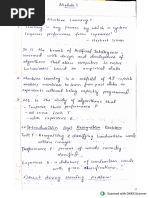 Module 1
Machine Learning!
"Learning is any process by which a system
improves performance from experience".
- Herbert Simon
It is the branch of Artificial Intelligence
concerned with the design and development of
algorithms that allow computers to evolve
behaviours based on empirical data.
Machine Learning is a subfield of AI which
enables machines to learn from past data or
experiences without being explicitly programmed.
ML is the study of algorithms that
- improve their performance P
- at some task T
- with experience E.
Handwritten Digit Recognition Problem
Task T: Recognizing & classifying handwritten
words within images.
Performance P: percent of words correctly
classified.
Experience E: a database of handwritten words
with given classifications.
Robot driving learning Problem
Scanned with OKEN Scanner